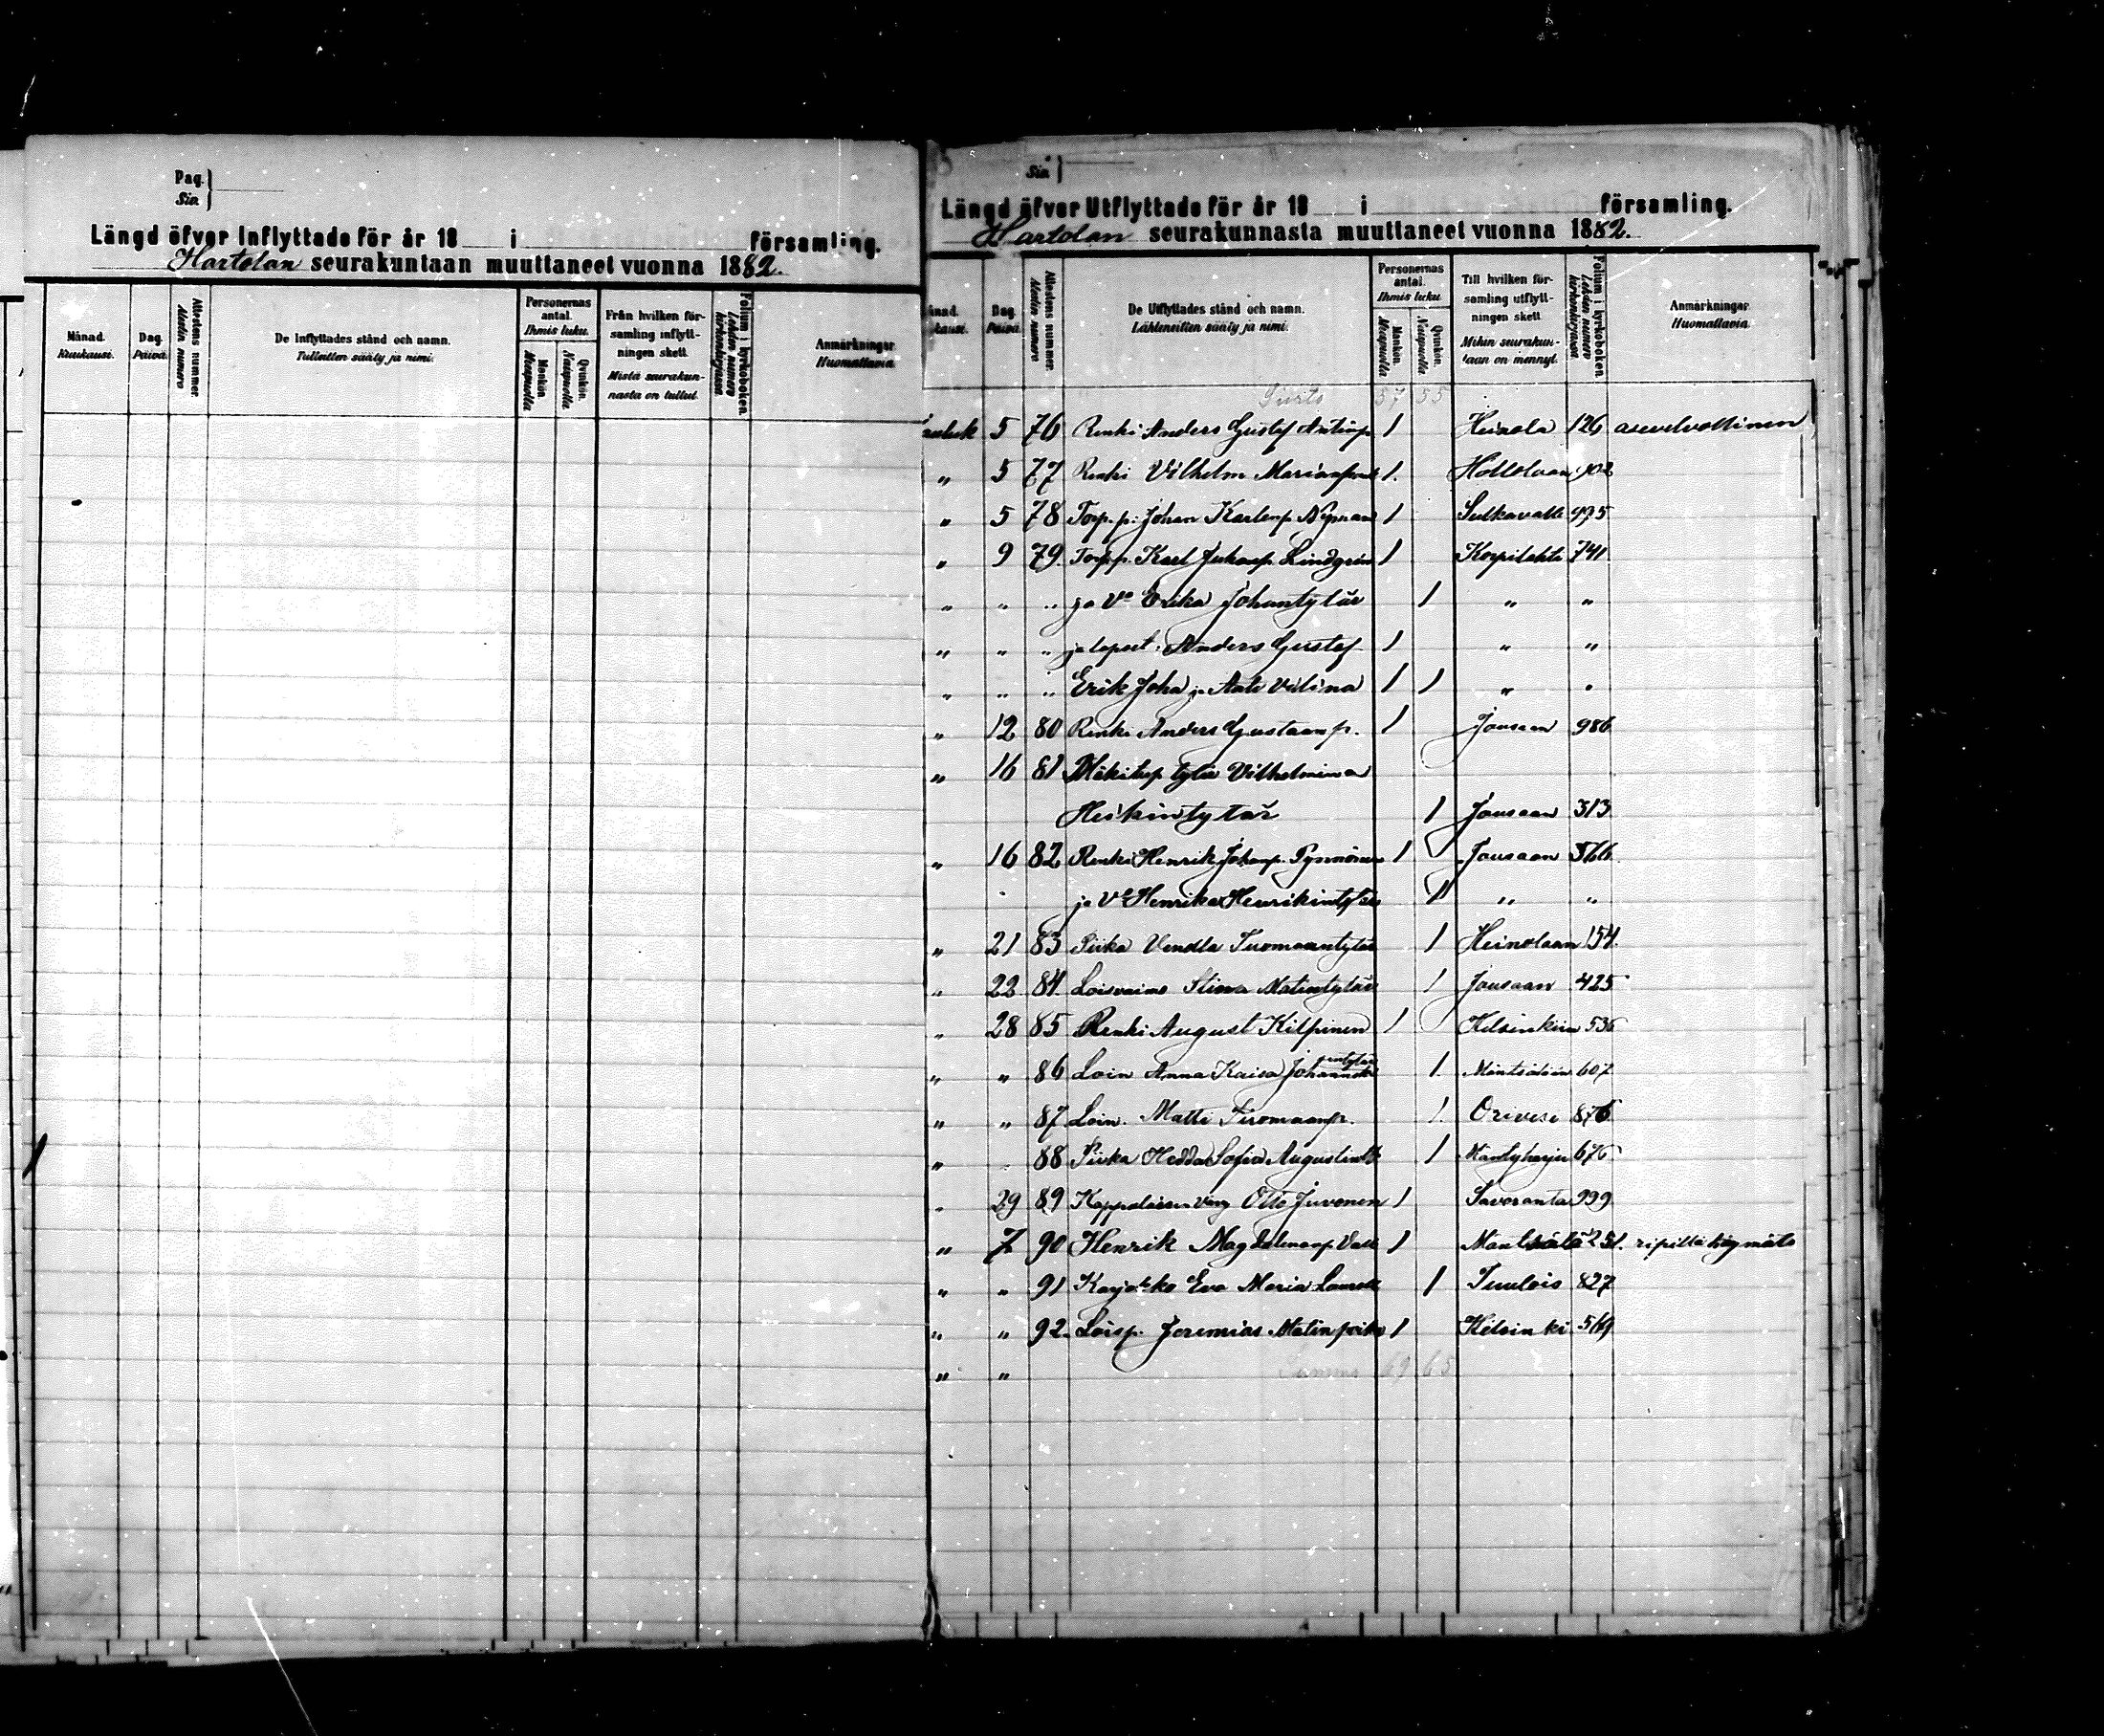 Pag.
Siv.
Längd öfver Inflyttade för år 18 i församling.
Hartolan seurakuntaan muuttaneet vuonna 1882.
Månad. Kuukausi.
Dag. Päivä
Attestens nummer Alestin numero
De Inflyttades stånd och namn. Tulleitten sääty ja nimi.
Personernas antal. Ihmis luku.
Mankön. Miespuolia
Qvinkön. Naispuolia
Från hvilken församling inflyttningen skett. Mistä seurakunnasta on tullut.
Folium i kyrkoboken. Lehden numero kirkonkirjassa
Anmärkningar Huomattavia
Siv.
Längd öfver Utflyttade för år 18 i församling.
Hartolan seurakunnasta muuttaneet vuonna 1882.
Dag. Päivä
Attestens nummer
De Utflyttades stånd och namn. Lähteneitten sääty ja nimi.
Personernas antal. Ihmis luku.
Mankön. Miespuolia
Qvinkön. Naispuolia
Till hvilken församling utflyttningen skett. Mihin seurakuntaan on mennyt.
Folium i kyrkoboken. Lehden numero kirkonkirjassa
Anmärkningar. Huomattavia.
Siirto 57 55
5 76 Renki Anders Gustaf Antinp 1 Heinola 126 asevelvollinen
" 5 77 Renki Vilhelm 1. Hollolaan 902
" 5 78 Torp.p. Johan Karlenp. Nyman 1 Sulkavalle 995
" 9 79. Torp.p. Karl Lindgrén 1 Korpilahti 741.
" " " ja Vo Erika Johantytär 1 " "
" " " ja lapset. Anders Gustaf 1 " "
" " " Erik Joha ja 1 1 " "
" 12 80 Renki Anders Gustaanp. 1 Jousaan 986
" 16 81 Mäkitup tytär Vilhelmina
Heikintytär 1 Jousaan 313.
" 16 82 Renki Henrik Johanp. Pynnönen 1 Jousaan 566.
ja Vo Henrika Henrikintytär 1 " "
" 21 83 Piika Vendla Tuomaantytär 1 Heinolaan 154.
" 22 84. Loisvaimo Stina Matintytär 1 Jousaan 425
" 28 85 Renki August Kilpinen 1 Helsinkiin 536
" " 86 Loin Anna Kaisa 1. Mäntsälään 607
" " 87 Loin. Matti Tuomaanp. 1. Orivesi 876.
" 88 Piika Hedda Sofia 1 Mäntyharju 676
29 89 Kappalaisen Otto Juvonen 1 Savoranta 999.
" 7 90 Henrik Magdalenanp 1 Mäntsälä 251. ripillä käymätö
" " 91 Karjakko Eva Maria 1 Tuulois 827
" " 92. Loisp. Jeremias Matinpoika 1 Helsinki 569
" " Summa 69 65